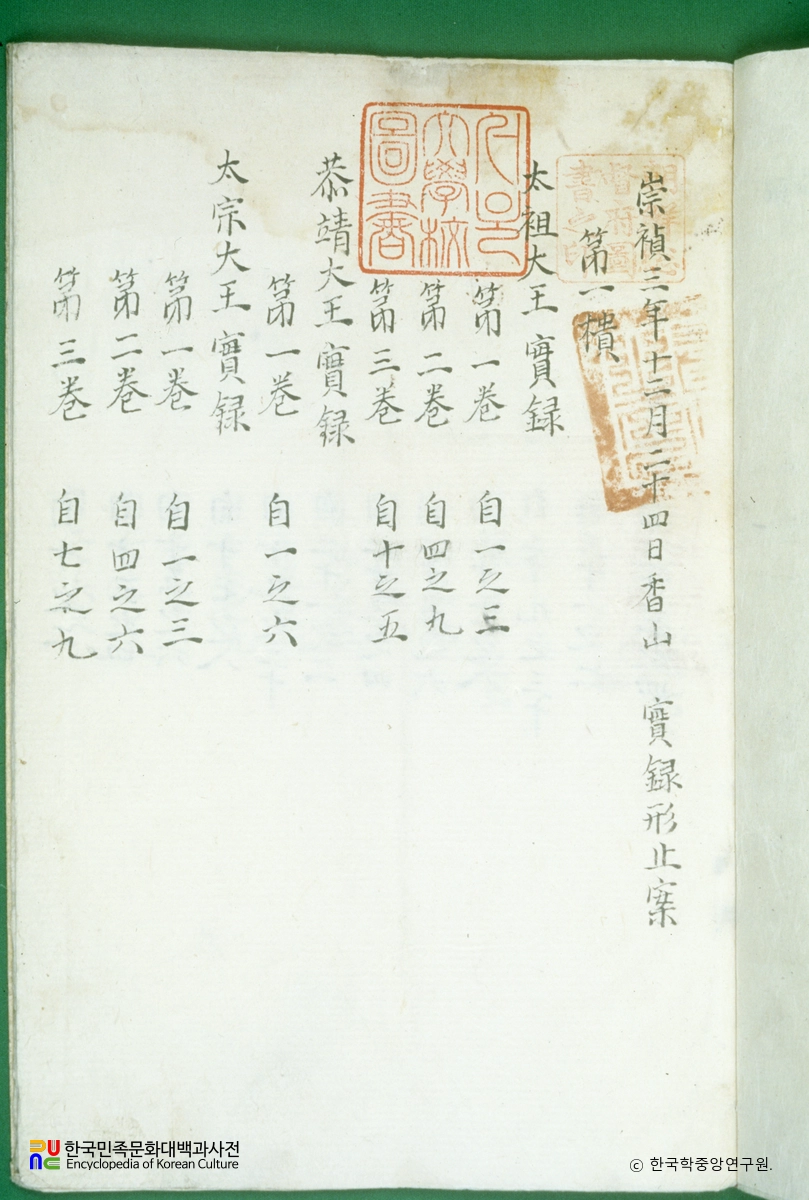 崇禎三年十二月二十四日香山 實錄形止案
第一樻
太祖大王實錄
第一卷 自一之三
第二卷 自四之九
第三卷 自十之五
恭靖大王實錄
第一卷 自一之六
太宗大王實錄
第一卷 自一之三
第二卷 自四之六
第三卷 自七之九
圖書
文學校
한국민족문화대백과사전
Encyclopedia of Korean Culture
ⓒ 한국학중앙연구원.